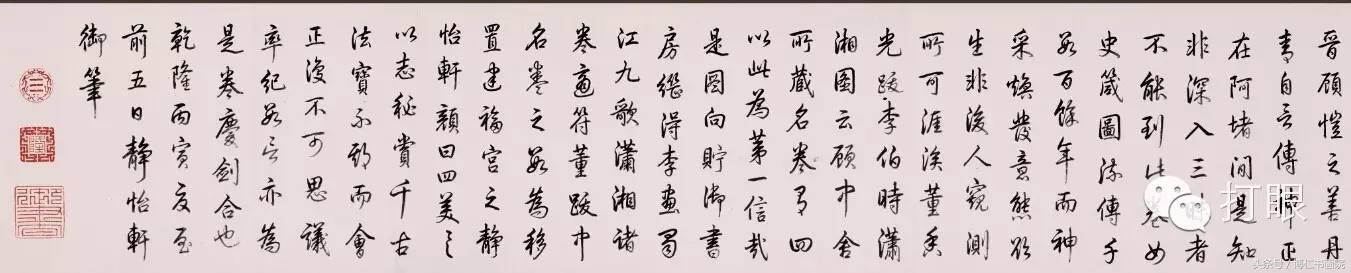 晉顧愷之善丹
青自言傳神正
在阿堵間是知
非深入三昧者
不能到此卷女
史箴圖流傳千
數百餘年而神
采煥發意態欲
生非後人窺測
所可涯涘董香
光跋李伯時瀟
湘圖云顧中舍
所藏名卷有四
以此為第一信哉
是圖向貯御書
房繼得李畫蜀
江九歌瀟湘諸
卷適符董跋中
名卷之數為移
置建福宮之靜
怡軒顏曰四美具
以志秘賞千古
法寶不期而會
正復不可思議
率紀數言亦為
是卷慶劍合也
乾隆丙寅夏至
前五日靜怡軒
御筆
打眼
头条号/博仁书画院